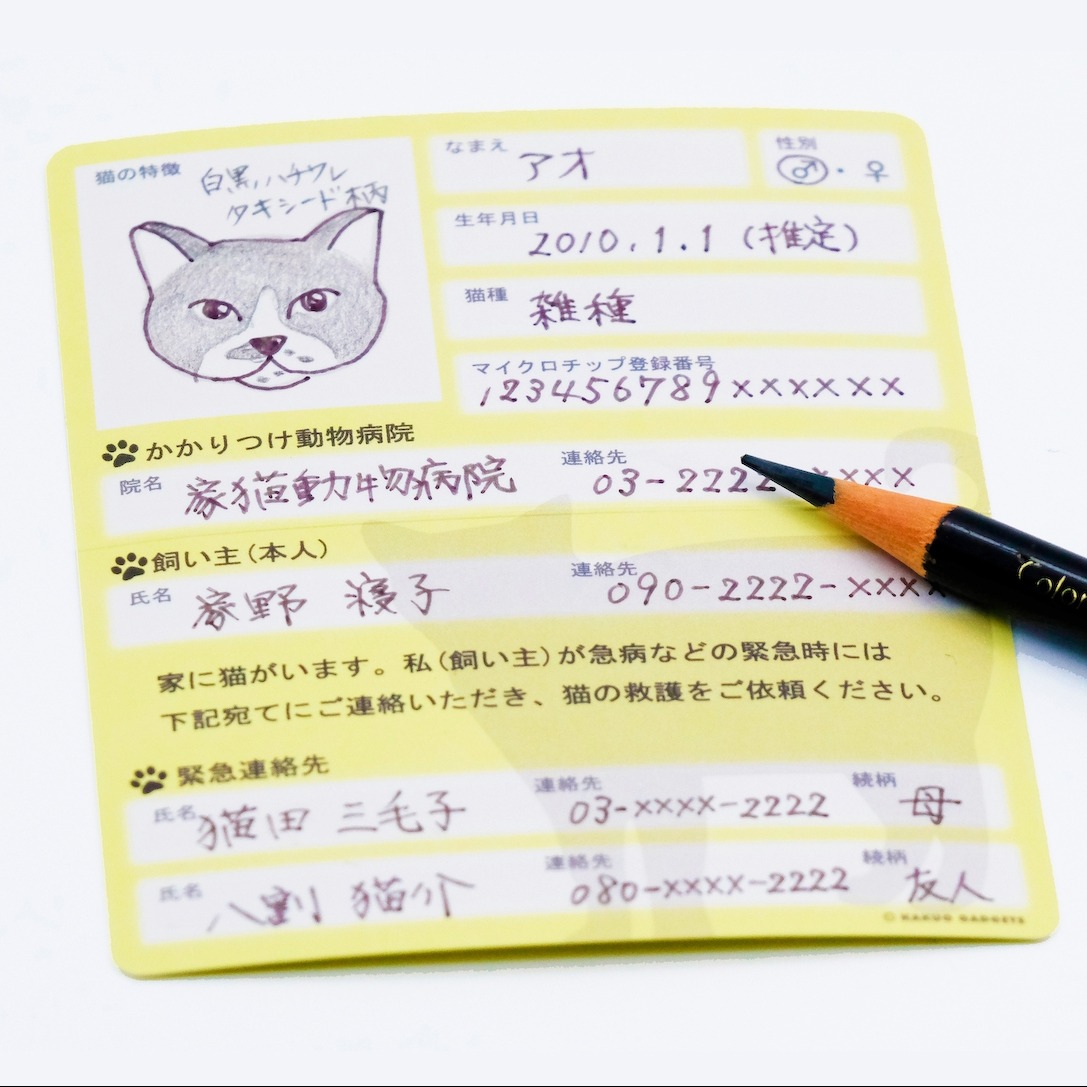 猫の特徴
白黒、ハチワレ
タキシード柄
なまえ アオ
性別 ♂・♀
生年月日 2010.1.1(推定)
猫種 雑種
マイクロチップ登録番号
123456789××××××
かかりつけ動物病院
院名 家猫動物病院 連絡先 03-2222-××××
飼い主(本人)
氏名 家野 寝子 連絡先 090-2222-×××
家に猫がいます。私(飼い主)が急病などの緊急時には
下記宛てにご連絡いただき、猫の救護をご依頼ください。
緊急連絡先
氏名 猫田 三毛子 連絡先 03-××××-2222 続柄 母
氏名 八割 猫介 連絡先 080-××××-2222 続柄 友人
© KAKUO GADGETS
Color